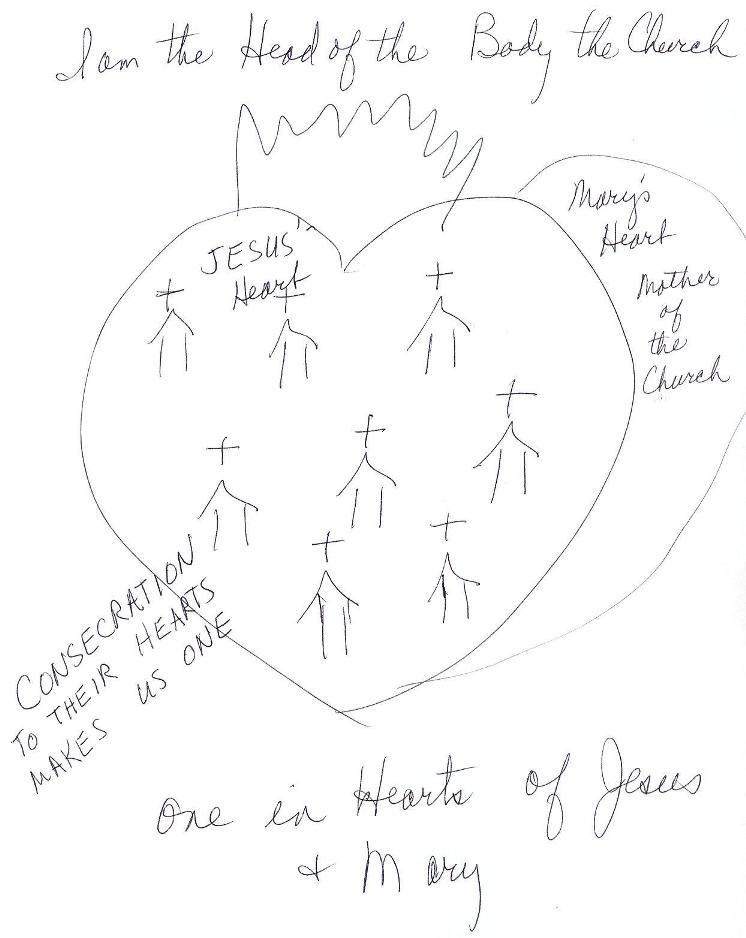 I am the Head of the Body the Church
JESUS'
Heart
Mary's
Heart
Mother
of
the
Church
CONSECRATION
TO THEIR HEARTS
MAKES US ONE
One in Hearts of Jesus
+ Mary